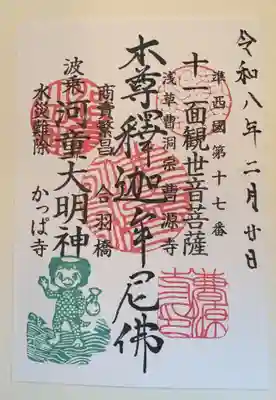 令和八年二月廿日
準西國第十七番
十一面観世音菩薩
浅草曹洞宗曹源寺
本尊釋迦牟尼佛
商賣繁昌 合羽橋
波乗河童大明神
水災難除 かっぱ寺